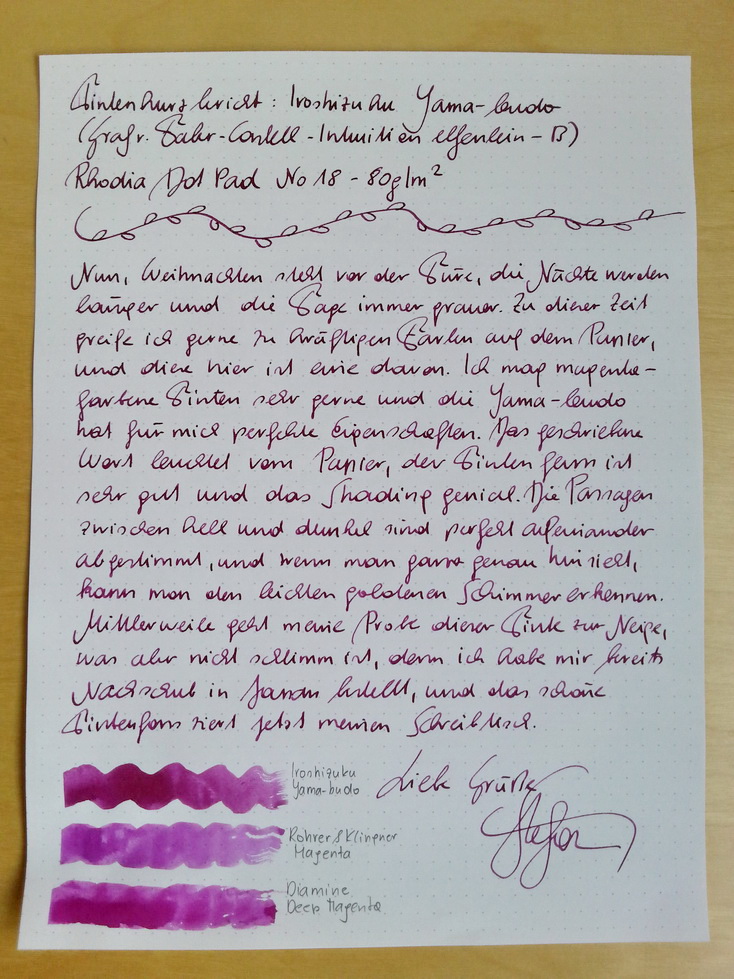 Tintenkurzbericht: Iroshizuku Yama-budo
(Graf v. Faber-Castell - Intuition elfenbein - B)
Rhodia Dot Pad No 18 - 80g/m²
Nun, Weihnachten steht vor der Türe, die Nächte werden
länger und die Tage immer grauer. Zu dieser Zeit
greife ich gerne zu kräftigen Farben auf dem Papier,
und diese hier ist eine davon. Ich mag magenta-
farbene Tinten sehr gerne und die Yama-budo
hat für mich perfekte Eigenschaften. Das geschriebene
Wort leuchtet vom Papier, der Tintenfluss ist
sehr gut und das Shading genial. Die Passagen
zwischen hell und dunkel sind perfekt aufeinander
abgestimmt, und wenn man ganz genau hinsieht,
kann man den leichten goldenen Schimmer erkennen.
Mittlerweile geht meine Probe dieser Tinte zur Neige,
was aber nicht schlimm ist, denn ich habe mir bereits
Nachschub in Japan bestellt, und das schöne
Tintenglas ziert jetzt meinen Schreibtisch.
Iroshizuku
Yama-budo
Liebe Grüße
Stefan
Rohrer & Klingner
Magenta
Diamine
Deep Magenta